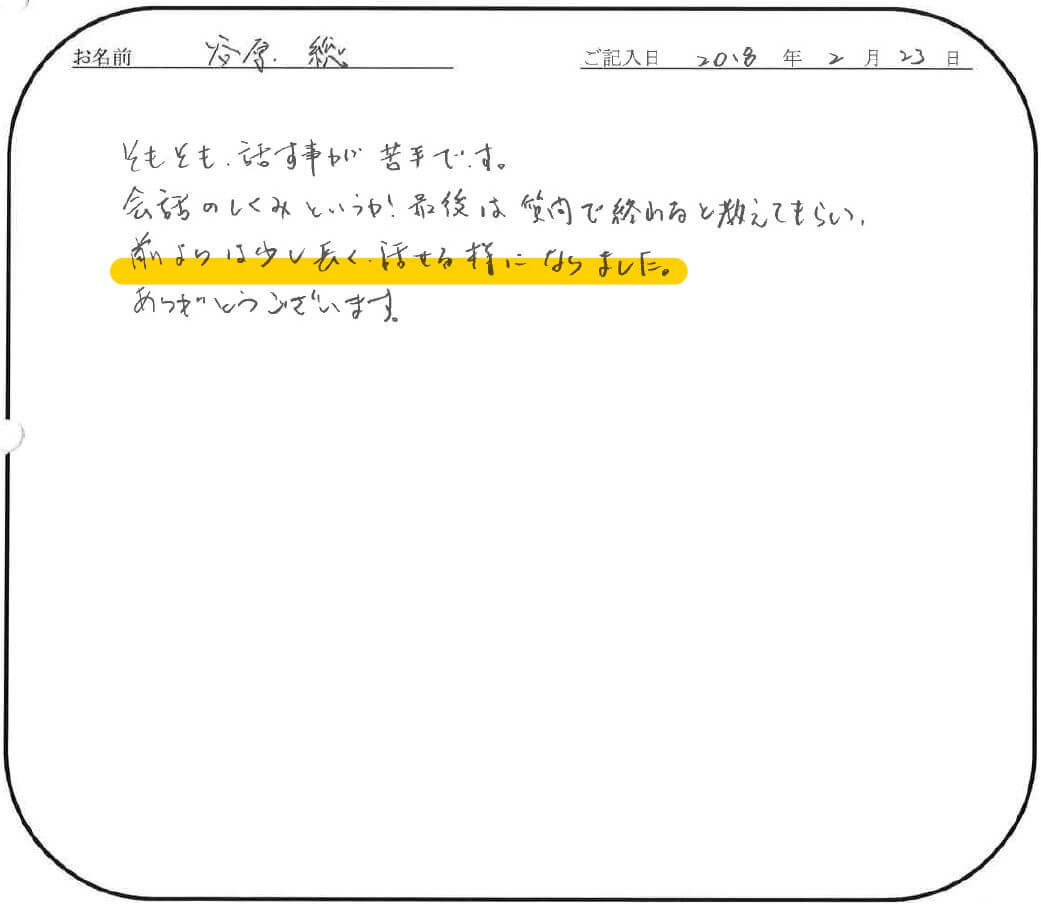 お名前 谷原 総 ご記入日 2018 年 2 月 23 日
そもそも、話す事が 苦手です。
会話のしくみというか! 最後は 質問で終わると教えてもらい、
前よりは少し長く、話せる様になりました。
ありがとうございます。